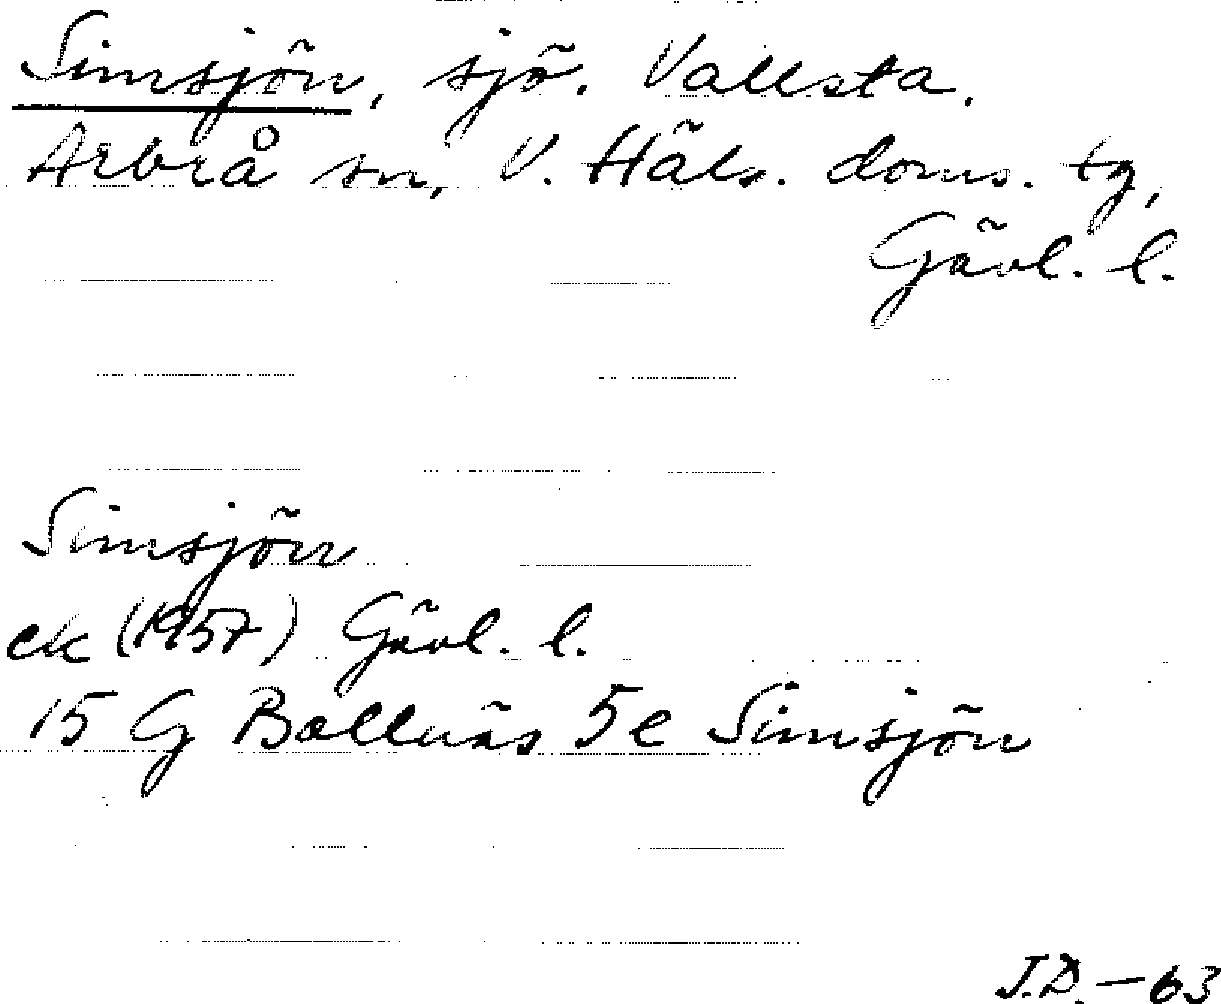 Simsjön, sjö. Vallsta.
Arbrå sn, V. Häls. doms. tg,
Gävl. l.
Simsjön
ek (1957) Gävl. l.
15 G Bollnäs 5e Simsjön
J.D. – 63